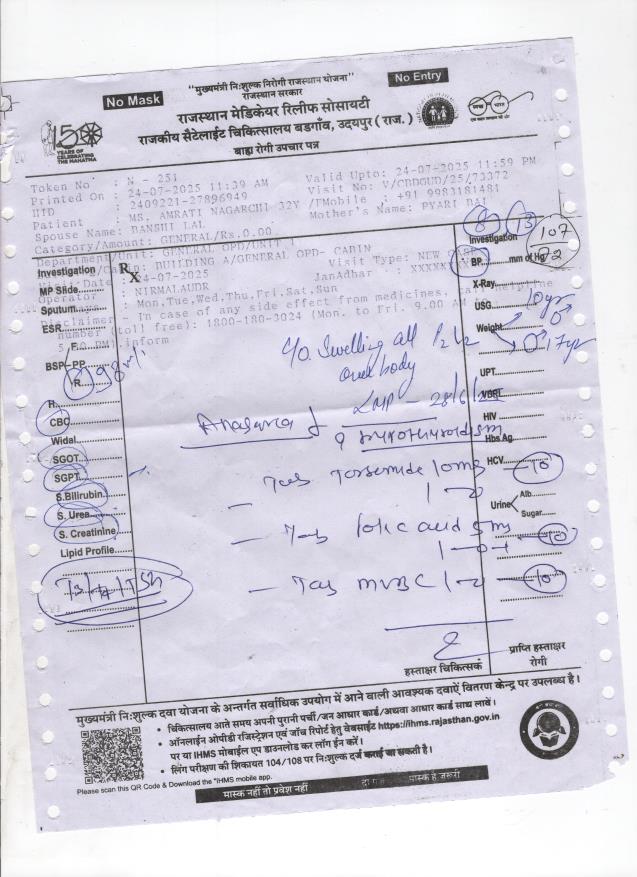 "मुख्यमंत्री निःशुल्क निरोगी राजस्थान योजना"
राजस्थान सरकार
No Mask
No Entry
राजस्थान मेडिकेयर रिलीफ सोसायटी
राजकीय सैटेलाईट चिकित्सालय बडगाँव, उदयपुर ( राज. )
बाह्य रोगी उपचार पत्र
150
YEARS OF
CELEBRATING
THE MAHATMA
Token No : N - 251
Valid Upto: 24-07-2025 11:59 PM
Printed On : 24-07-2025 11:39 AM
Visit No: V/CDDGUD/25/73372
HID : 2409221-27896949
Patient : MS. AMRATI NAGARCHI 32Y /F
Mobile : +91 9983181481
Spouse Name: BANSHI LAL
Mother's Name: PYARI BAI
Category/Amount: GENERAL/Rs.0.00
Department/Unit: GENERAL OPD/UNIT 1
BUILDING A/GENERAL OPD- CABIN
Visit Type: NEW
24-07-2025
JanAdhar :
Operator : NIRMALAUDR
Mon,Tue,Wed,Thu,Fri,Sat,Sun
Disclaimer : In case of any side effect from medicines,
number (toll free): 1800-180-3024 (Mon. to Fri. 9.00 AM
inform
Investigation
MP Slide
Sputum
ESR
F.
BSP PP
R.
98
H.
CBC
Widal
SGOT
SGPT
S.Bilirubin.
S. Urea
S. Creatinine
Lipid Profile
T3/T4/TSH
Rx
Swelling all
over body
LMP - 28/6/25
Anasarca
Tab Torsemide 10mg
10
Tab folic acid 5mg
10
Tab MVBC
10
8
13
Investigation
107
72
BP mm of Hg
X-Ray
USG
Weight
10yr
17yr
UPT
VDRL
HIV
Hbs Ag
HCV
Urine
Alb.
Sugar
हस्ताक्षर चिकित्सक
प्राप्ति हस्ताक्षर
रोगी
मुख्यमंत्री निःशुल्क दवा योजना के अन्तर्गत सर्वाधिक उपयोग में आने वाली आवश्यक दवाऐं वितरण केन्द्र पर उपलब्ध है।
• चिकित्सालय आते समय अपनी पुरानी पर्ची/जन आधार कार्ड/अथवा आधार कार्ड साथ लावें।
• ऑनलाईन ओपीडी रजिस्ट्रेशन एवं जाँच रिपोर्ट हेतु वेबसाईट https://ihms.rajasthan.gov.in
पर या IHMS मोबाईल एप डाउनलोड कर लॉग ईन करें।
• लिंग परीक्षण की शिकायत 104/108 पर निःशुल्क दर्ज कराई जा सकती है।
Please scan this QR Code & Download the "IHMS mobile app.
मास्क नहीं तो प्रवेश नहीं
मास्क है जरूरी